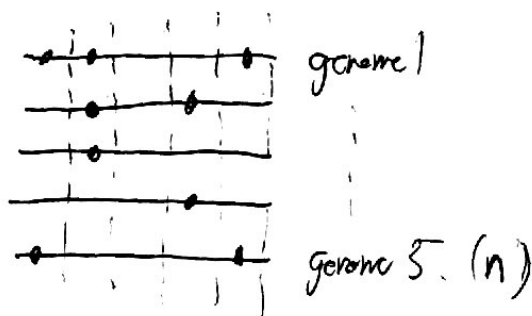 genome 1
genome 5. (n)